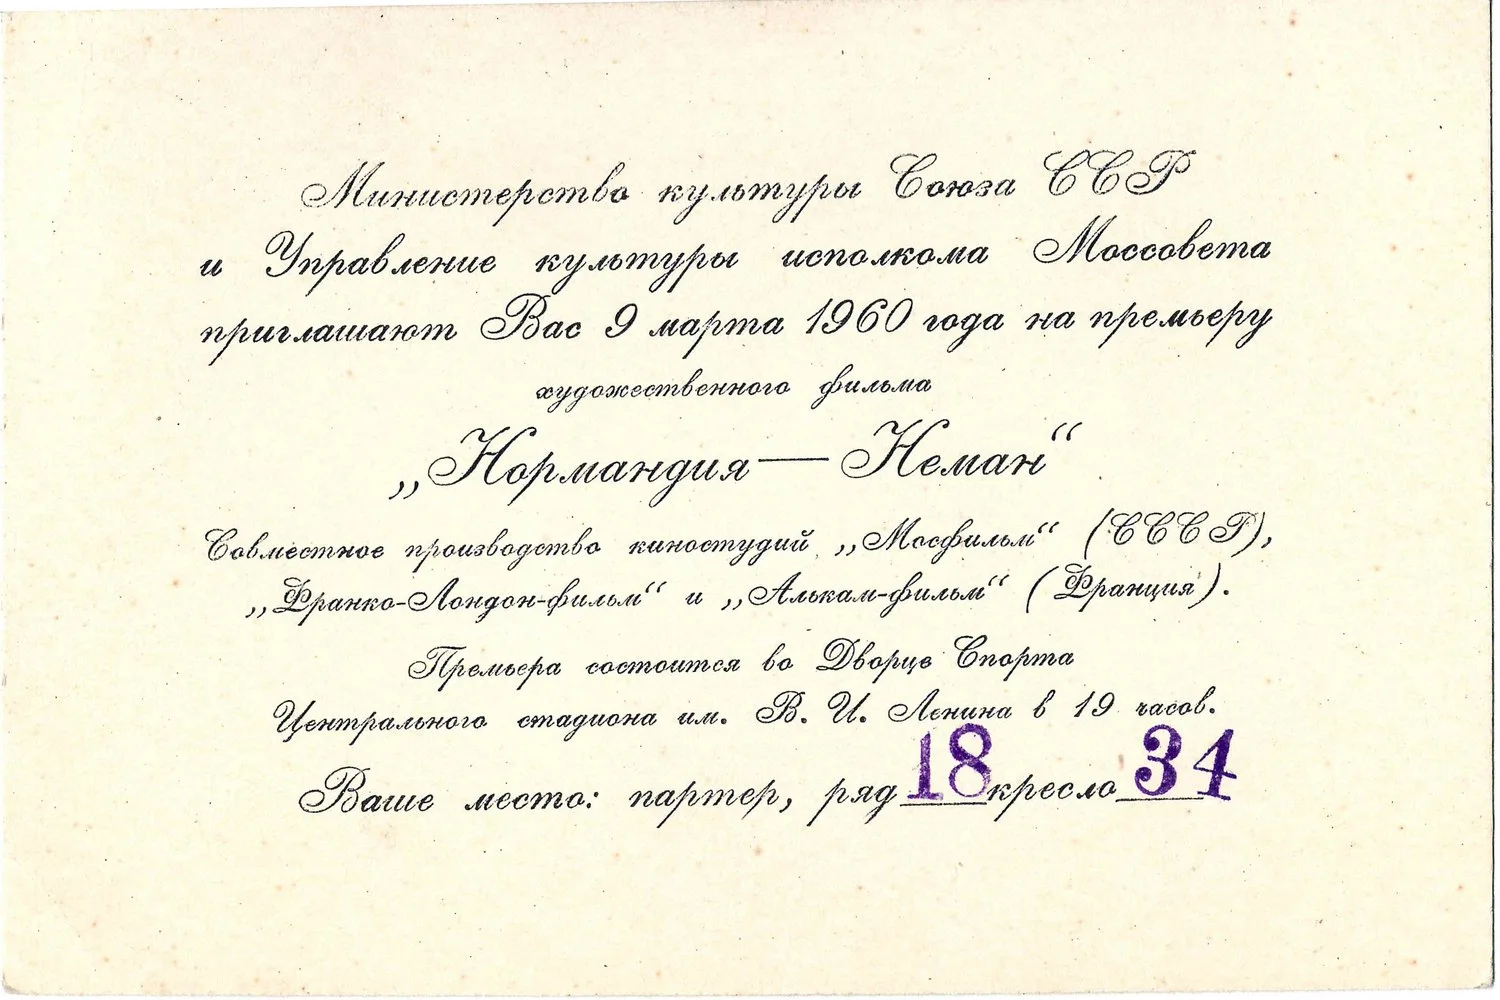 Министерство культуры Союза ССР
и Управление культуры исполкома Моссовета
приглашают Вас 9 марта 1960 года на премьеру
художественного фильма
„Нормандия — Неман“
Совместное производство киностудий „Мосфильм“ (СССР),
„Франко-Лондон-фильм“ и „Алькам-фильм“ (Франция).
Премьера состоится во Дворце Спорта
Центрального стадиона им. В. И. Ленина в 19 часов.
Ваше место: партер, ряд 18 кресло 34